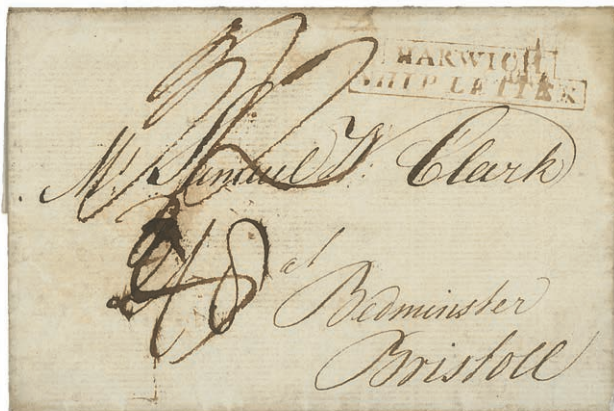 HARWICH
SHIP LETTER
Mr Samuel W Clark
at
Bedminster
Bristoll